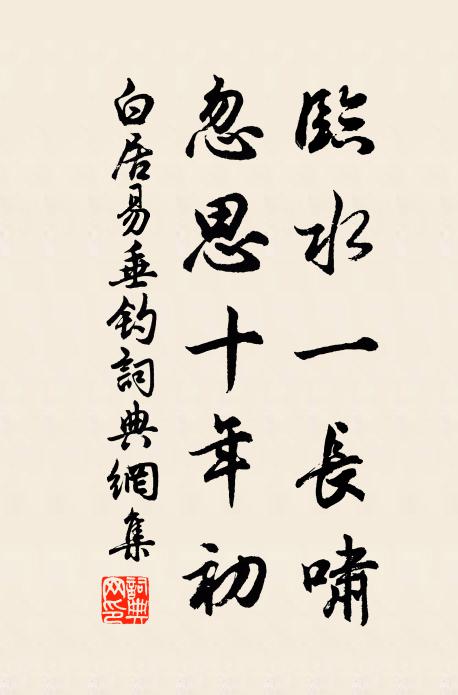 臨水一長嘯
忽思十年初
白居易垂釣詞典網集
詞典
网印